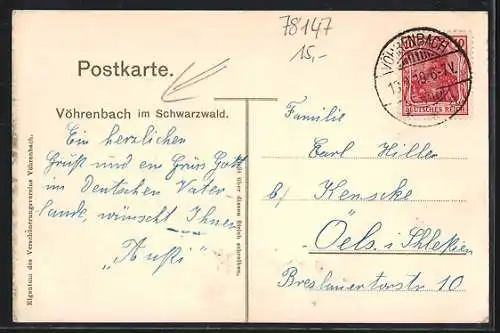 78147
15,-
VÖHRENBACH
10
DEUTSCHES REICH
Postkarte.
Vöhrenbach im Schwarzwald.
Ein herzlichen
Grüß und en Grüss Gott
im Deutschen Vater-
lande, wünscht Ihnen
Familie
Carl Hiller
b/ Kenscke
Öels. i/Schlesien
Breslauertorstr 10
Eigentum des Verschönerungsvereins Vöhrenbach.
Nicht über diesen Strich schreiben.